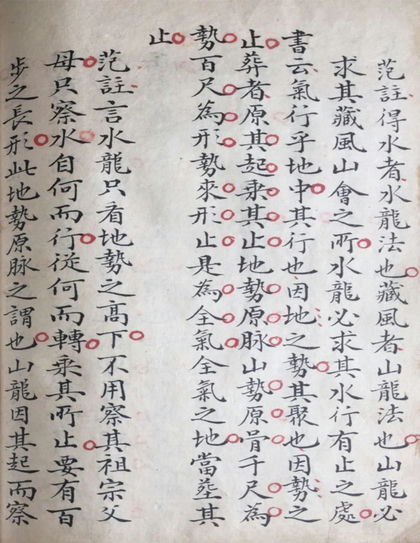 范註得水者水龍法也藏風者山龍法也山龍必
求其藏風山會之所水龍必求其水行有止之處
書云氣行乎地中其行也因地之勢其聚也因勢之
止葬者原其起乘其止地勢原脉山勢原骨千尺為
勢百尺為形勢來形止是為全氣全氣之地當塟其
止
范註言水龍只看地勢之高下不用察其祖宗父
母只察水自何而行從何而轉乘其所止要有百
步之長形此地勢原脉之謂也山龍因其起而察